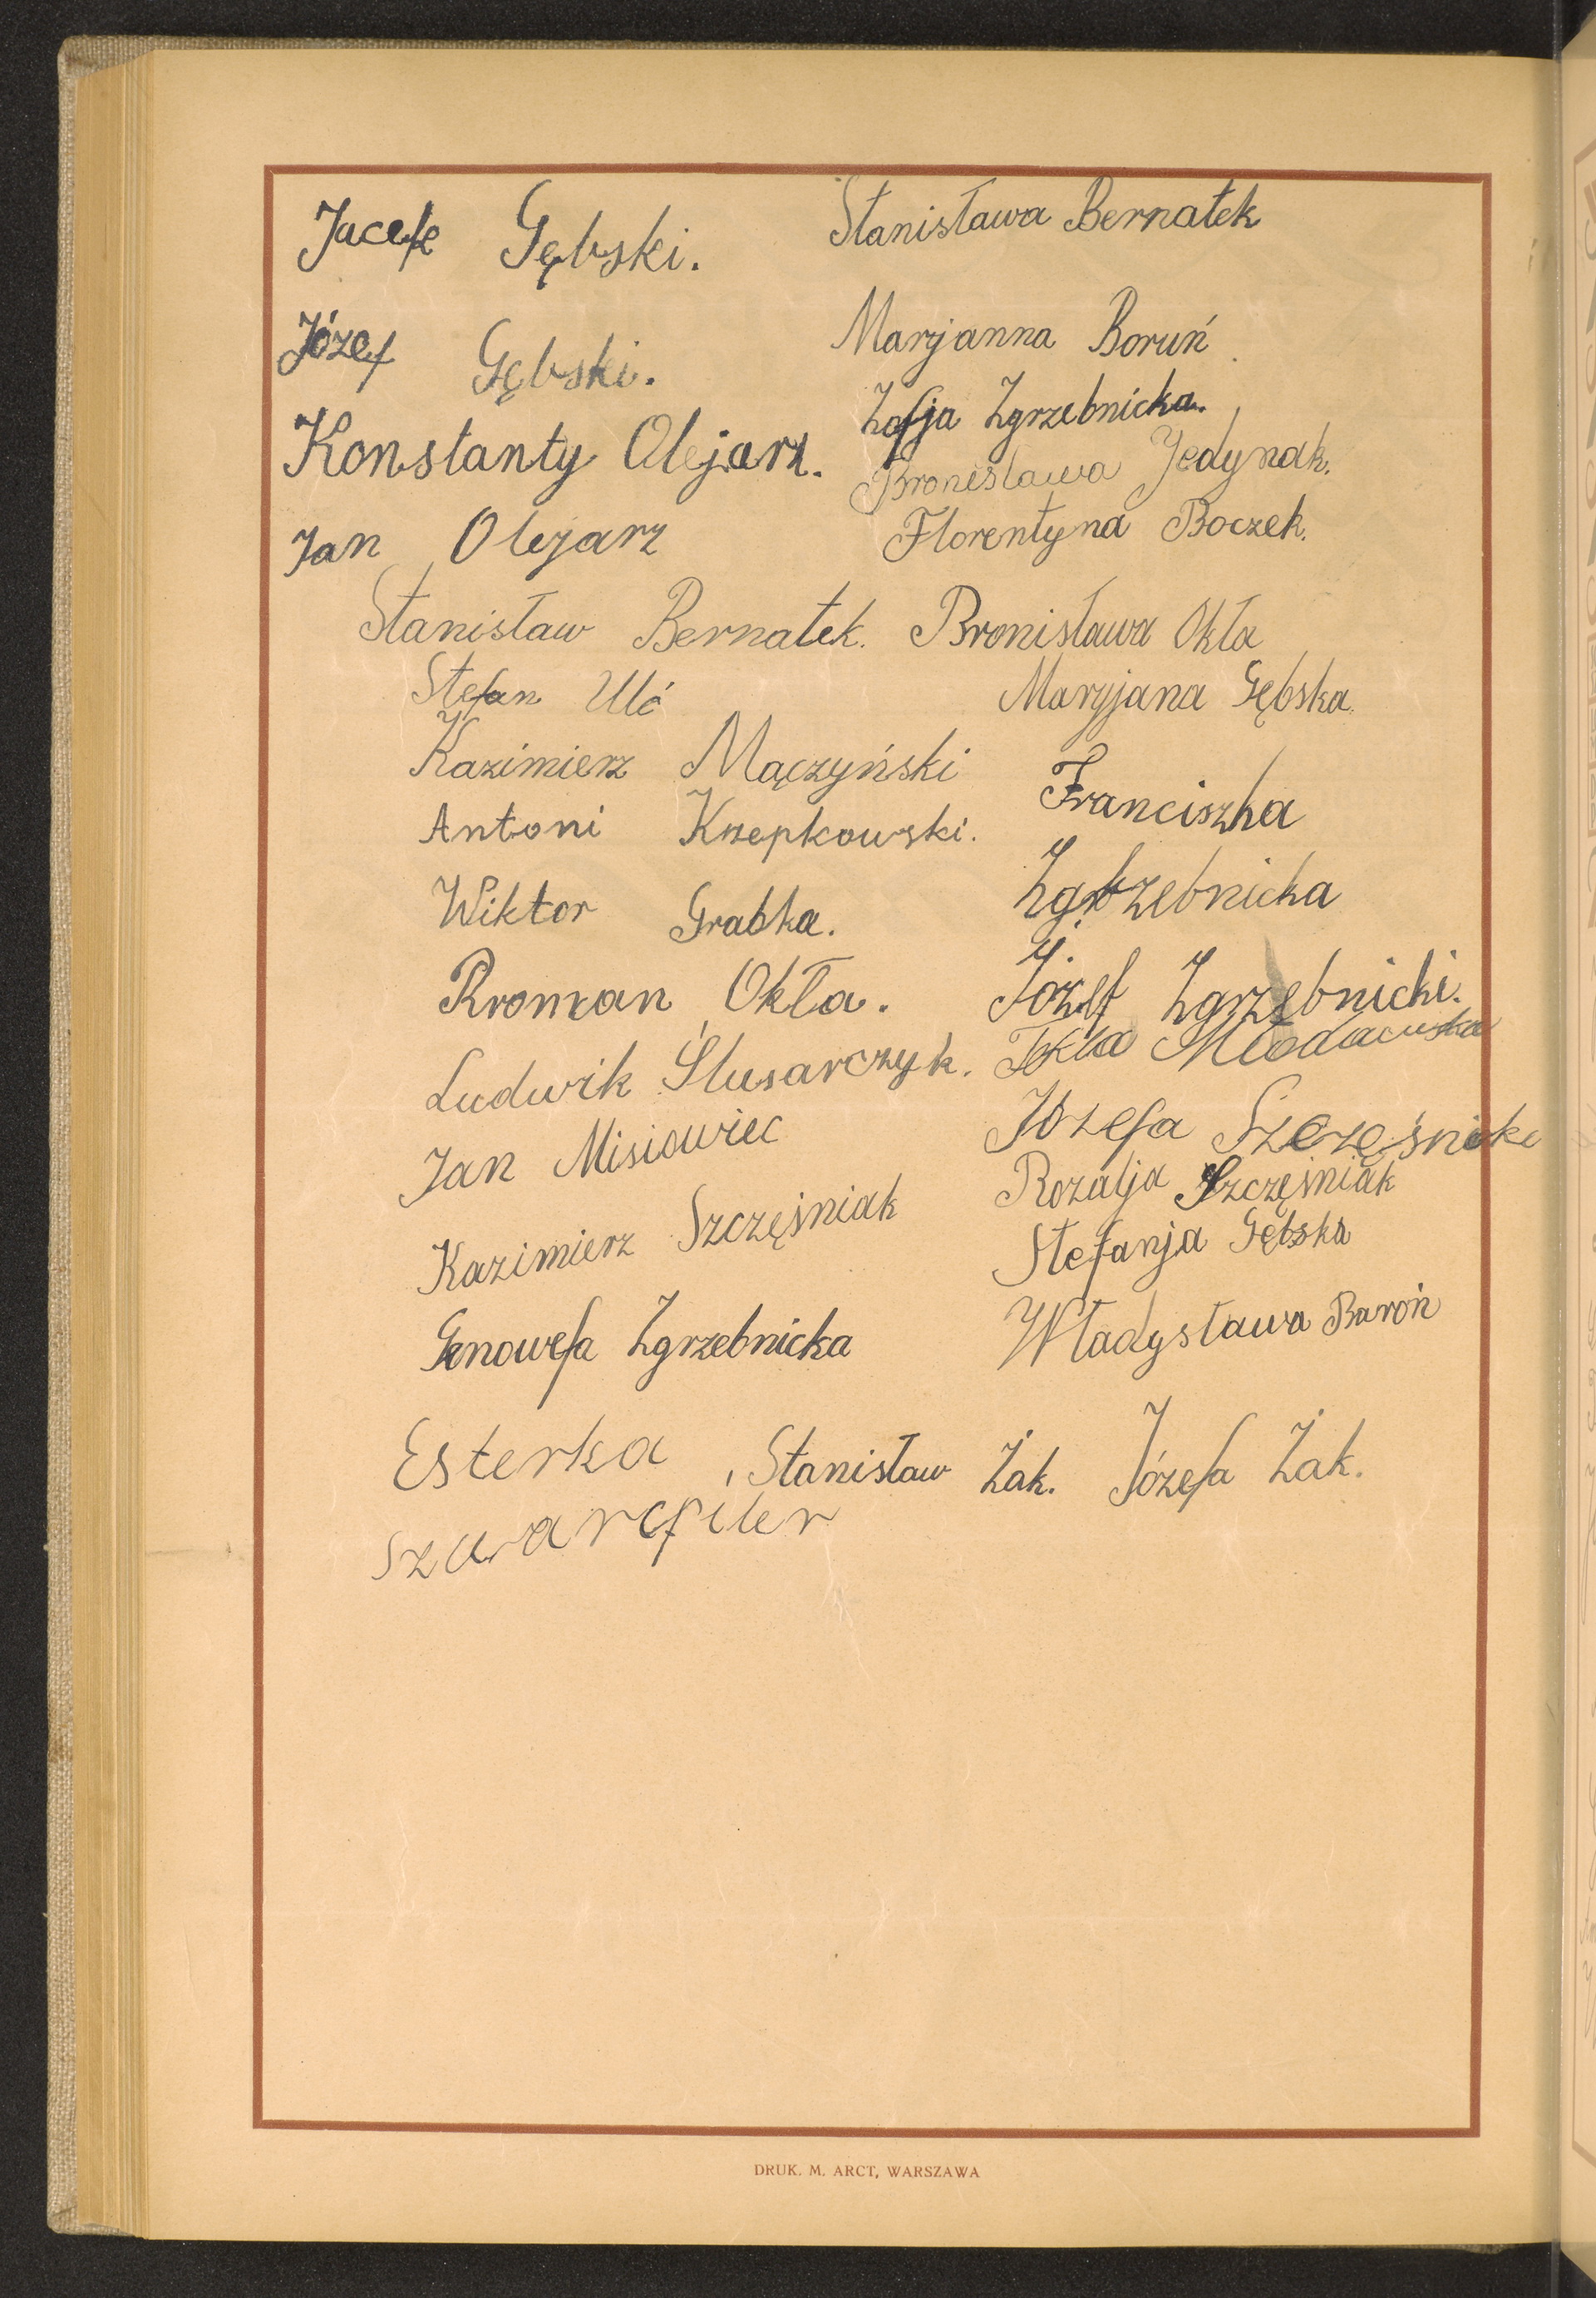 Jacek Gębski.
Józef Gębski.
Konstanty Olejarz.
Jan Olejarz
Stanisław Bernatek.
Stefan Ulć
Kazimierz Mączyński
Antoni Krzepkowski.
Wiktor Grabka.
Rroman Okła.
Ludwik Ślusarczyk.
Jan Misiowiec
Kazimierz Szczęśniak
Genowefa Zgrzebnicka
Esterka
Szwarcfiler
Stanisława Bernatek
Marjanna Boruń
Zofja Zgrzebnicka.
Bronisława Jedynak.
Florentyna Boczek.
Bronisława Okła
Maryjana Gębska.
Franciszka
Zgrzebnicka
Józef Zgrzebnicki.
Tekla
Józefa
Rozalja Szczęśniak
Stefanja Gębska
Władysława Baroń
Stanisław Żak. Józefa Żak.
DRUK. M. ARCT, WARSZAWA